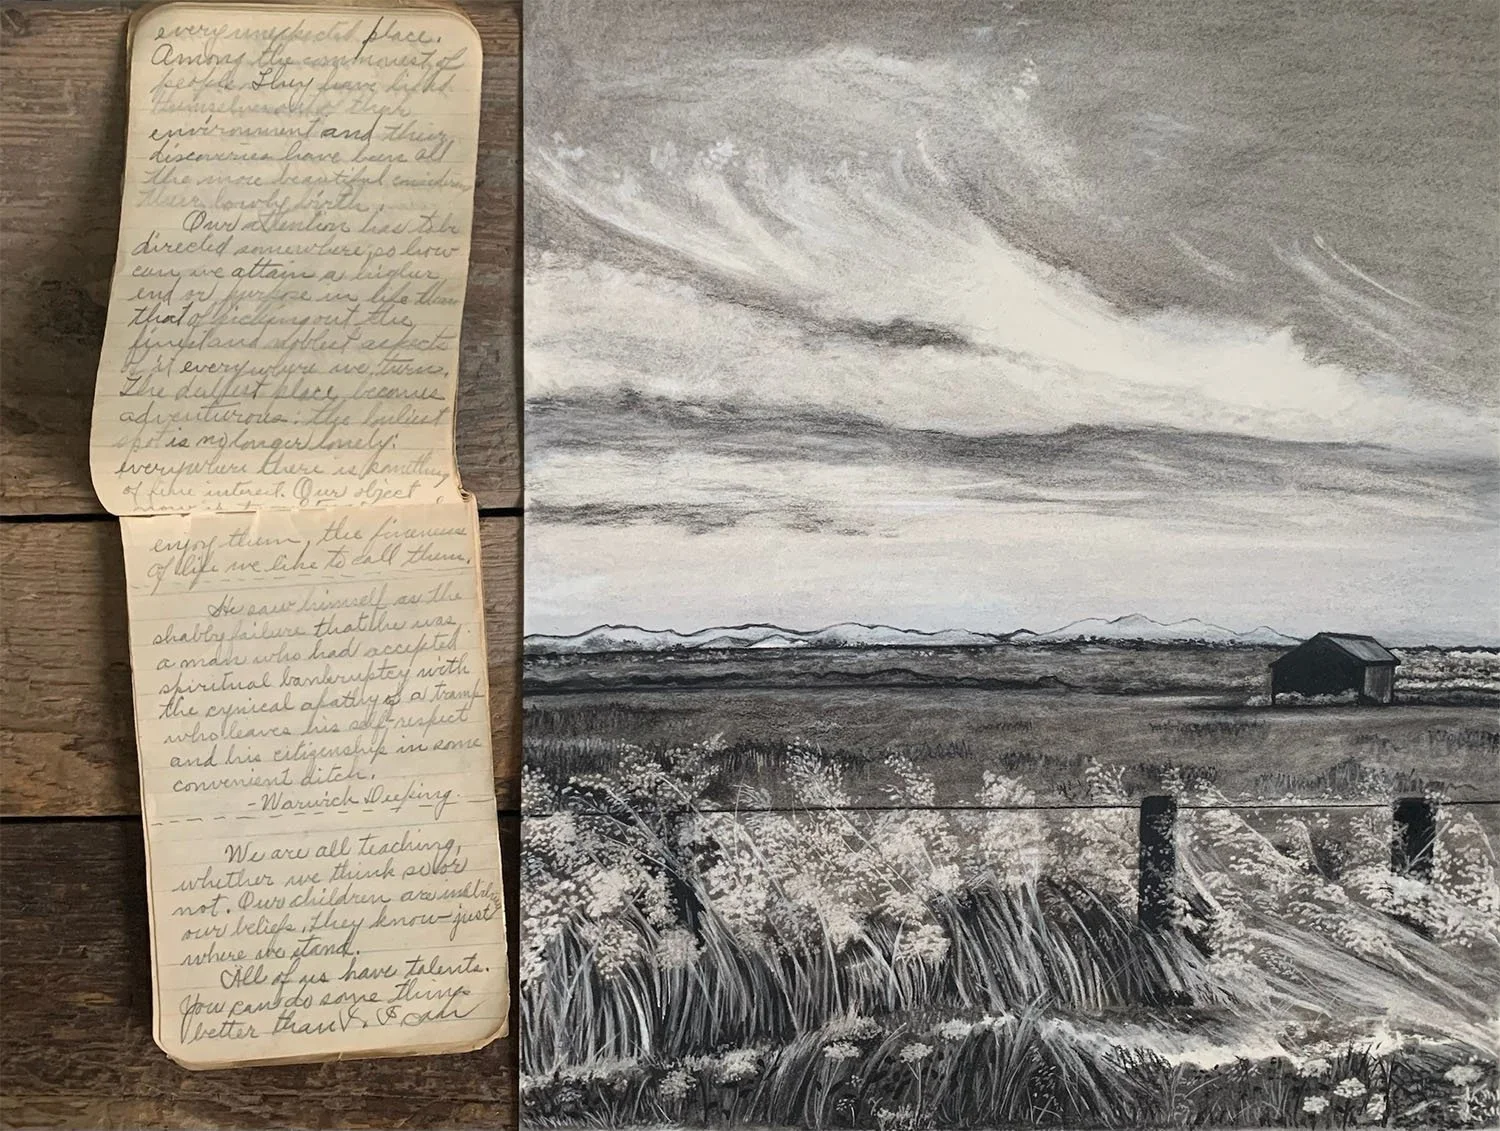 every unexpected place.
Among the commonest of
people. They have lifted
themselves out of their
environment and their
discoveries have been all
the more beautiful considering
their lowly birth.
Our attention has to be
directed somewhere, so how
can we attain a higher
end or purpose in life than
that of picking out the
finest and noblest aspects
of it everywhere we turn.
The dullest place becomes
adventurous: the loneliest
spot is no longer lonely:
everywhere there is something
of fine interest. Our object
now is to
enjoy them, the fineness
of life we like to call them.
He saw himself as the
shabby failure that he was,
a man who had accepted
spiritual bankruptcy with
the cynical apathy of a tramp
who leaves his self-respect
and his citizenship in some
convenient ditch.
- Warwick Deeping.
We are all teaching,
whether we think so or
not. Our children are
our beliefs, they know - just
where we stand.
All of us have talents.
You can do some things
better than I. I can